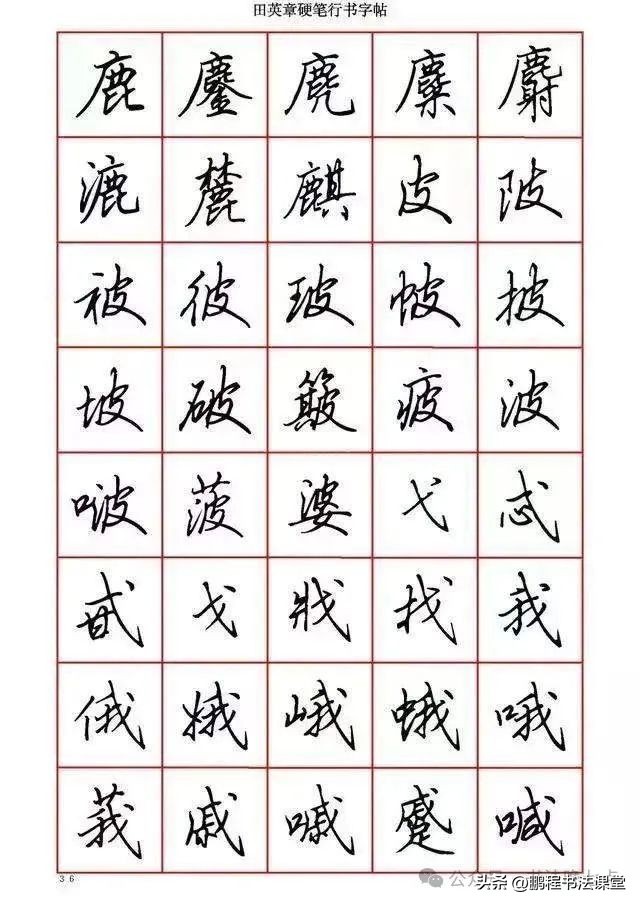 田英章硬笔行书字帖
鹿 鏖 麂 麋 麝
漉 麓 麒 皮 陂
被 彼 玻 帔 披
坡 破 簸 疲 波
啵 菠 婆 弋 忒
甙 戈 戕 找 我
俄 娥 峨 蛾 哦
莪 戚 嘁 蹙 喊
36
头条 @鹏程书法课堂